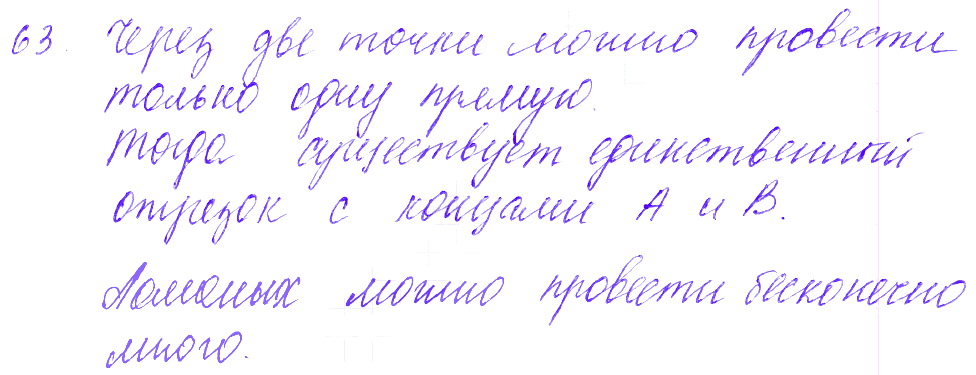 63. Через две точки можно провести
только одну прямую.
Тогда существует единственный
отрезок с концами А и В.
Ломаных можно провести бесконечно
много.